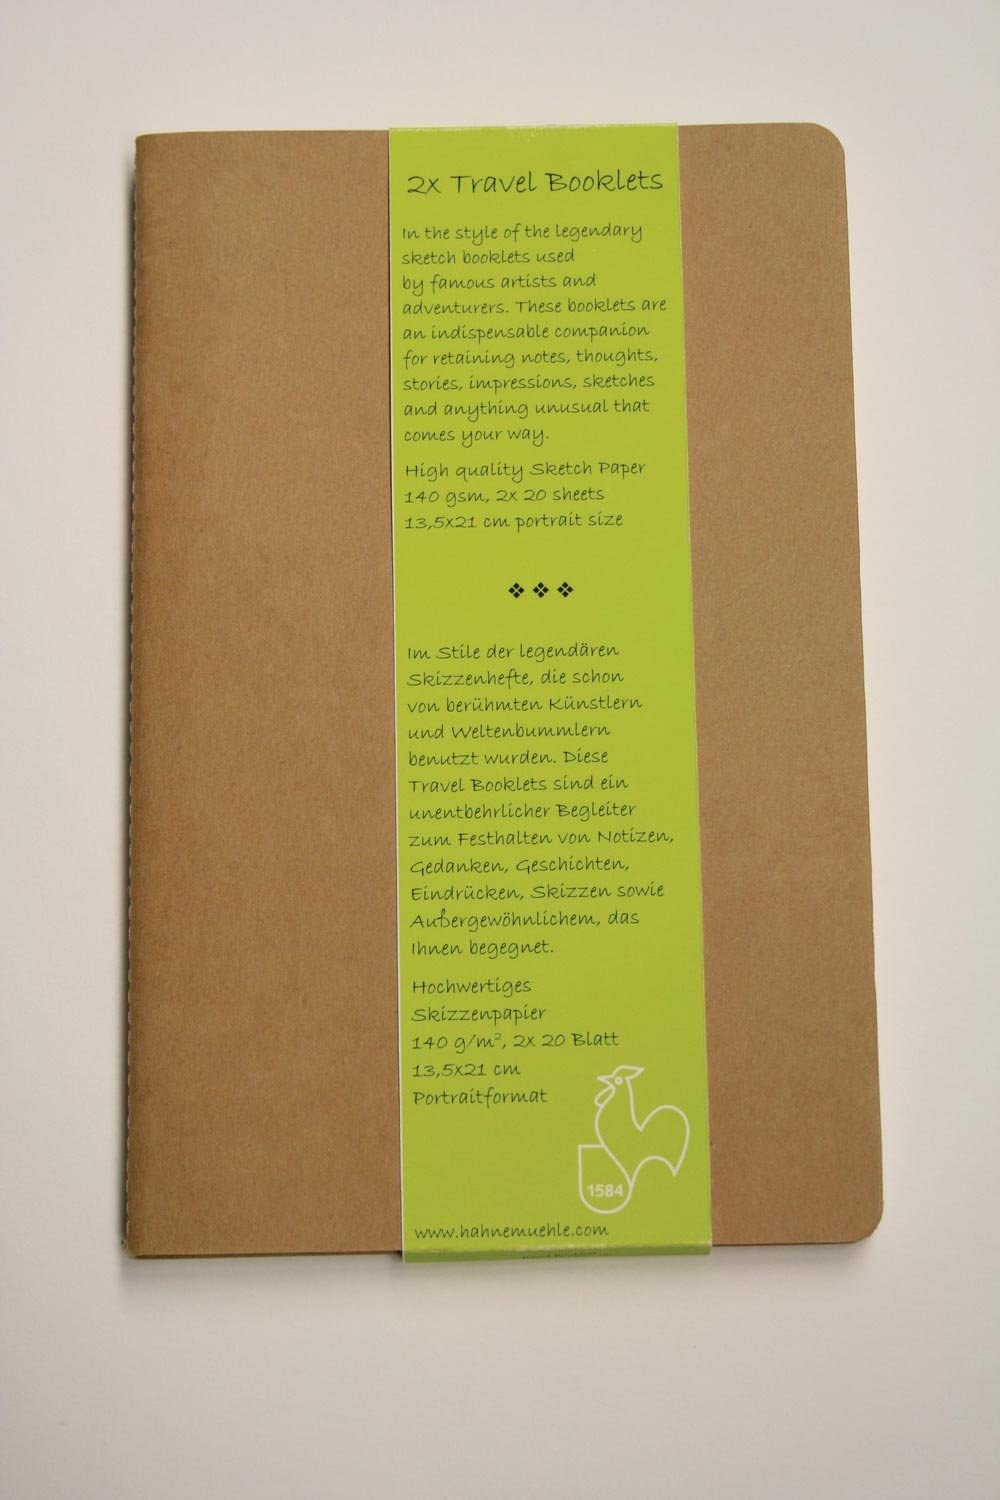 2x Travel Booklets
In the style of the legendary
sketch booklets used
by famous artists and
adventurers. These booklets are
an indispensable companion
for retaining notes, thoughts,
stories, impressions, sketches
and anything unusual that
comes your way.
High quality Sketch Paper
140 gsm, 2x 20 sheets
13,5x21 cm portrait size
Im Stile der legendären
Skizzenhefte, die schon
von berühmten Künstlern
und Weltenbummlern
benutzt wurden. Diese
Travel Booklets sind ein
unentbehrlicher Begleiter
zum Festhalten von Notizen,
Gedanken, Geschichten,
Eindrücken, Skizzen sowie
Außergewöhnlichem, das
Ihnen begegnet.
Hochwertiges
Skizzenpapier
140 g/m², 2x 20 Blatt
13,5x21 cm
Portraitformat
1584
www.hahnemuehle.com